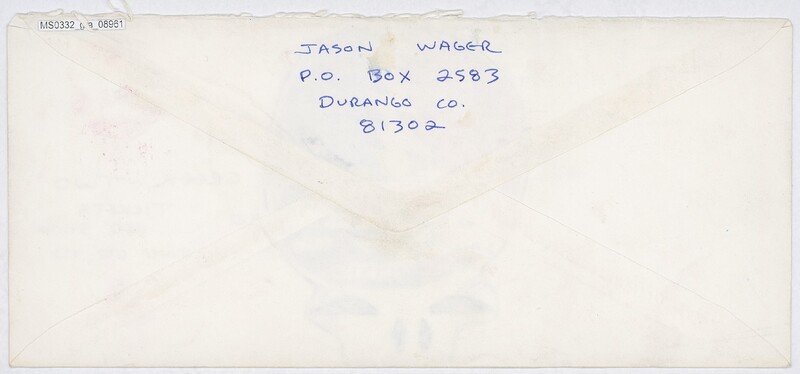 MS0332_
JASON WAGER
P.O. BOX 2583
DURANGO CO.
81302